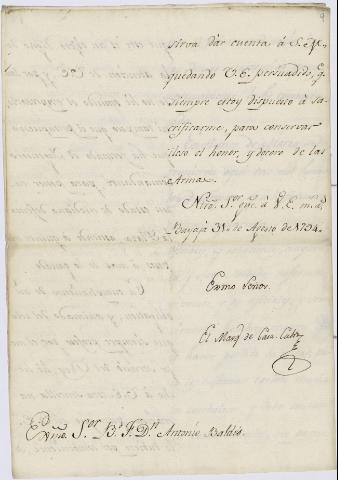 sirva dar cuenta á S. M.
quedando V. E. persuadido, q.
siempre estoy dispuesto á sa-
crificarme, para conservar
ileso el honor, y decoro de las
Armas.
Ntro. S.or gue. á V. E. m. a.
Bayajá 31. de Agosto de 1794.
Exmo Señor
El Marq. de Casa Calvo
Exmo. S.or B.o F. D.n Antonio Baldés.